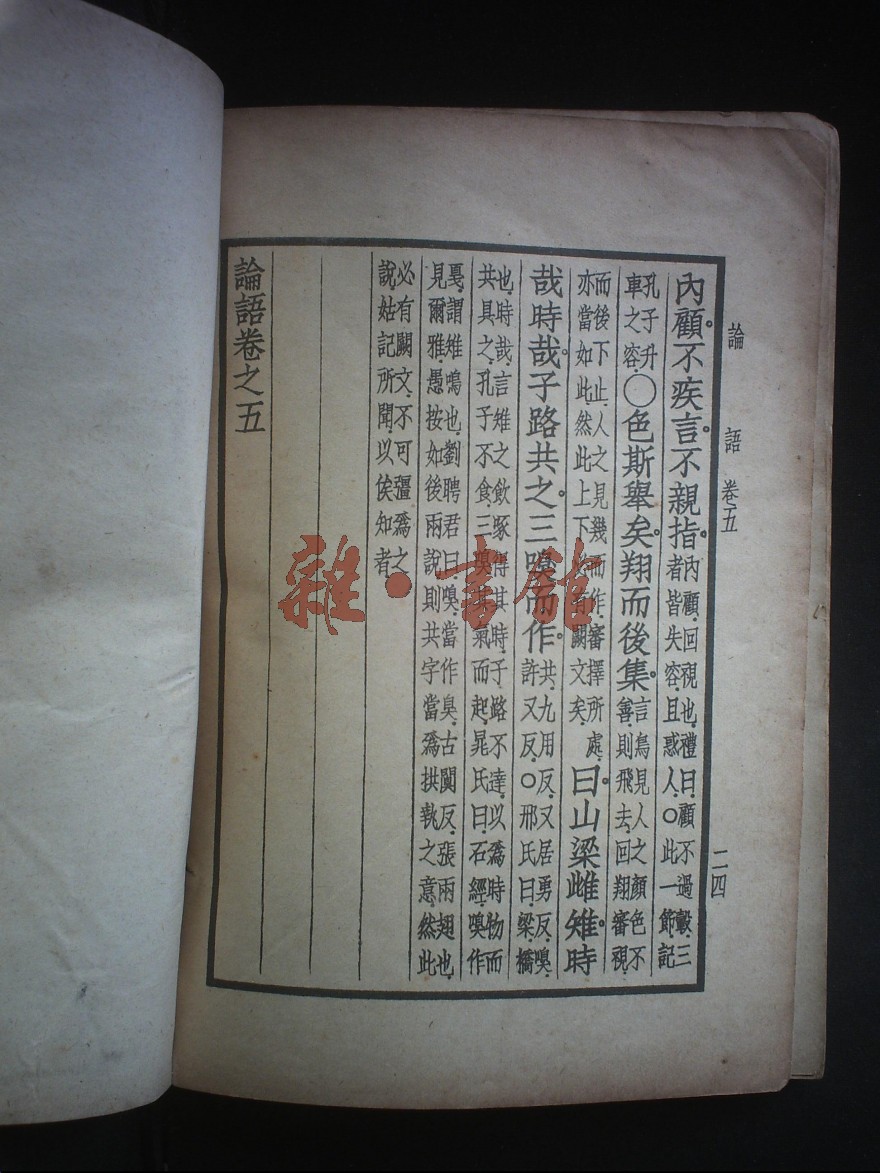 論語 卷五 二四
內顧。不疾言。不親指。
內顧、回視也、禮曰、顧不過轂、三
者皆失容、且惑人、○此一節、記
孔子升
車之容、
○色斯舉矣。翔而後集。
言鳥見人之顏色不
善、則飛去、回翔審視、
而後下止、人之見幾而作、審擇所處、
亦當如此、然此上下必有闕文矣、
曰。山梁雌雉。時
哉時哉。子路共之。三嗅而作。
共、九用反、又居勇反、嗅、
許又反、○邢氏曰、梁、橋
也、時哉、言雉之飲啄得其時、子路不達、以爲時物而
共具之、孔子不食、三嗅其氣而起、晁氏曰、石經、嗅作
戛、謂雉鳴也、劉聘君曰、嗅、當作臭、古闃反、張兩翅也、
見爾雅、愚按、如後兩說、則共字當爲拱執之意、然此
必有闕文、不可彊爲之
說、姑記所聞、以俟知者、
論語卷之五
雜·書館